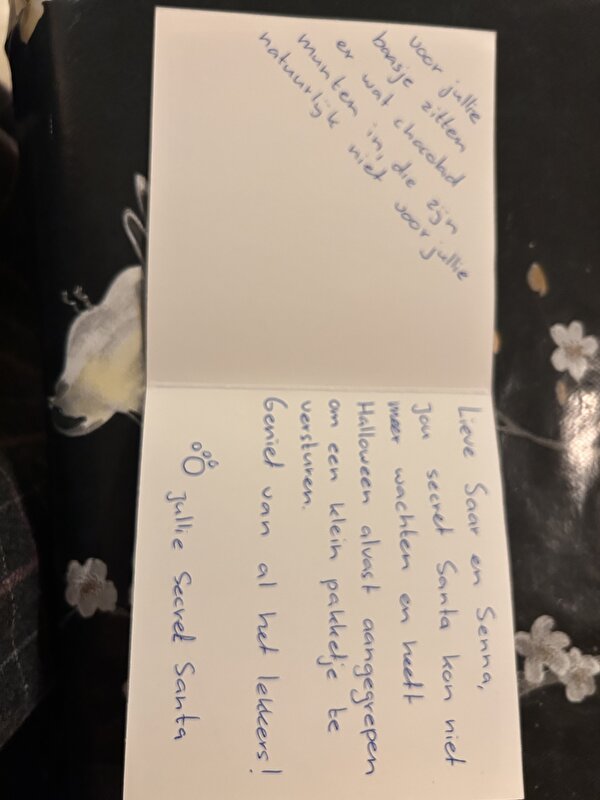 voor jullie
baasje zitten
er wat chocolad
munten in, die zijn
natuurlijk niet voor jullie
Lieve Saar en Senna,
Jou secret Santa kon niet
meer wachten en heeft
Halloween alvast aangegrepen
om een klein pakketje te
versturen.
Geniet van al het lekkers!
Jullie Secret Santa